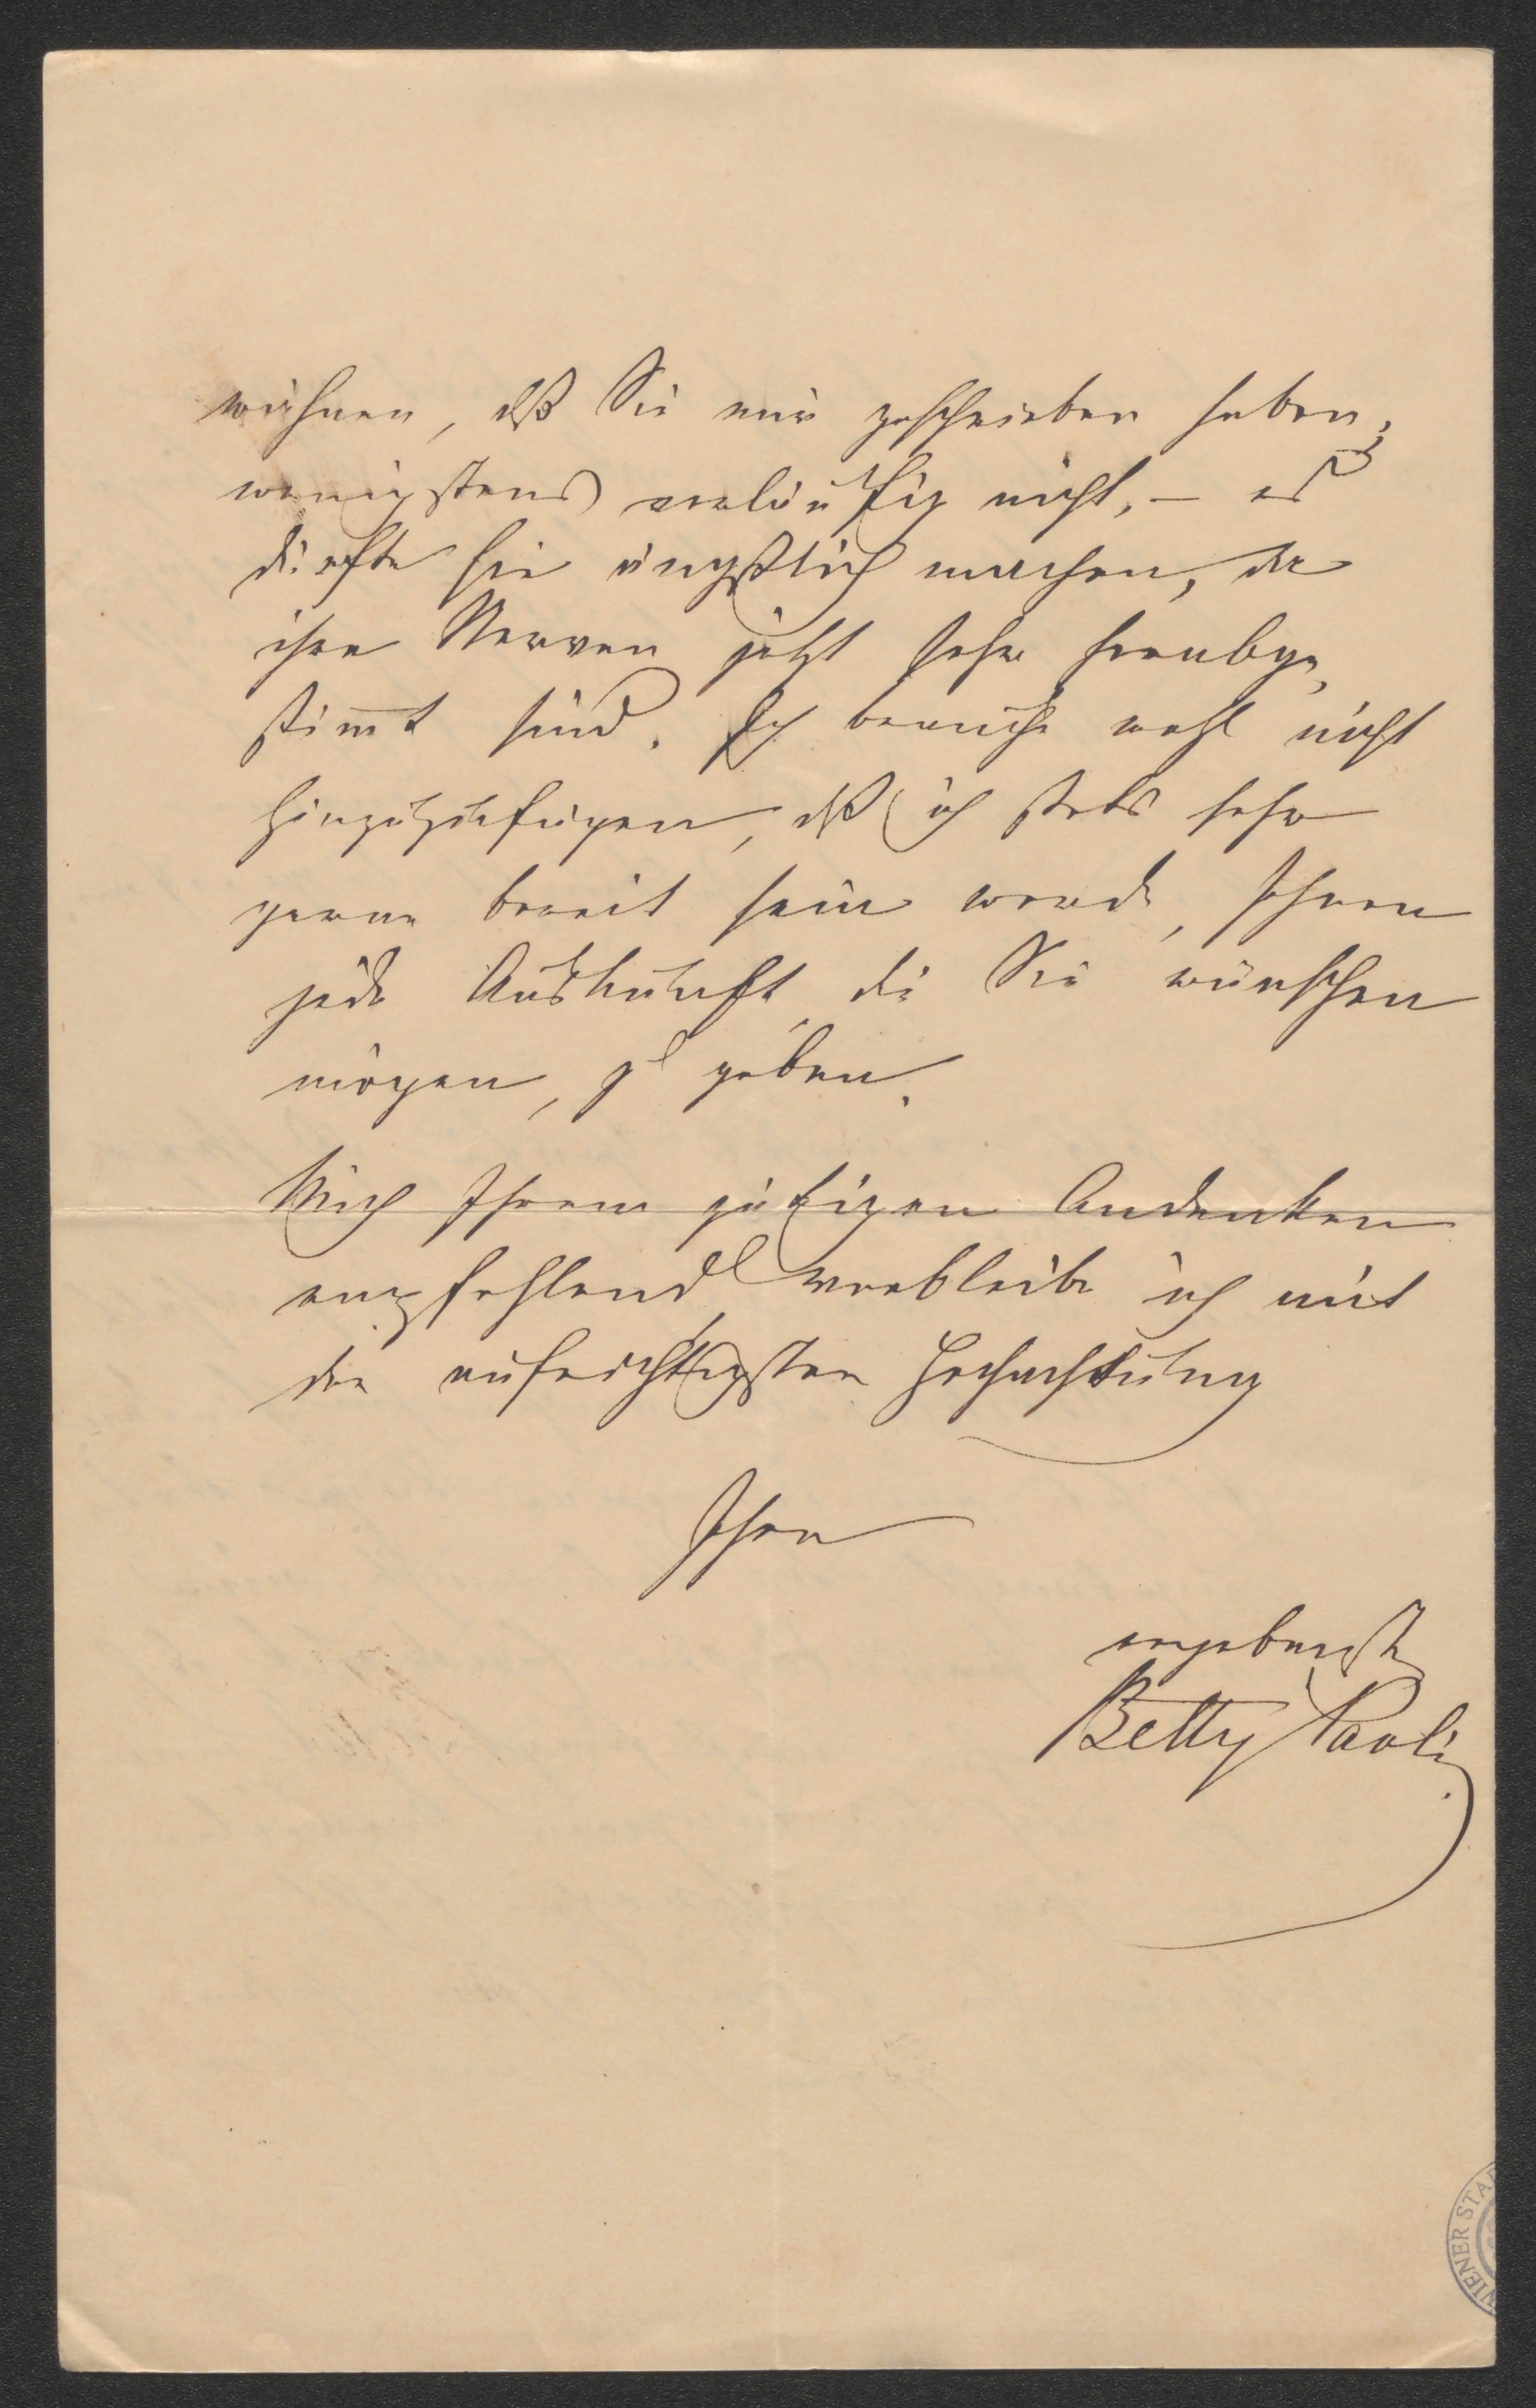 wähnen, dß Sie mir geschrieben haben,
wenigstens vorläufig nicht, – es
dürfte sie ängstlich machen, da
ihre Nerven jetzt sehr herabge,
stim̅t sind. Ich brauche wohl nicht
hinzuzufügen, dß ich stets sehr
gerne bereit sein werde, Ihnen
jede Auskunft, die Sie wünschen
mögen, zu geben.
Mich Ihrem gütigen Andenken
empfehlend, verbleibe ich mit
der aufrichtigsten Hochachtung
Ihre
ergebenste
Betty Paoli
WIENER STA